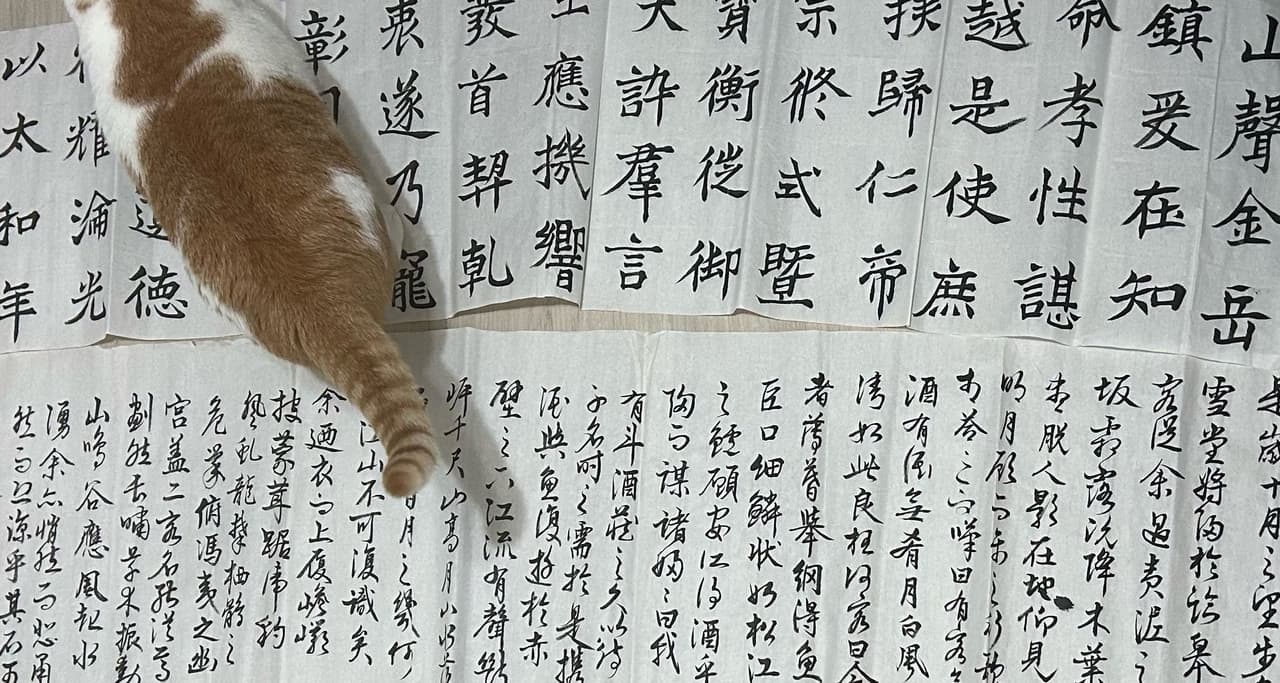 山聲金岳
鎮爰在知
命孝性諶
越是使庶
歸仁帝
終式暨
衡從御
許羣言
應機響
發首契乾
衷遂乃龍
彰
德
耀淪光
以太和年
是歲十月之望步
雪堂將歸於臨皋
客從余過黃泥之
坂霜露既降木葉
盡脫人影在地仰見
明月顧而樂之行歌
相答已而嘆曰有客
酒有酒無肴月白風
清如此良夜何客曰今
者薄暮舉網得魚
巨口細鱗狀如松江
之鱸顧安所得酒乎
歸而謀諸婦〻曰我
有斗酒藏之久以待
子不時之需於是攜
酒與魚復遊於赤
壁之下江流有聲斷
岸千尺山高月小水落
日月之幾何
江山不可復識矣
余迺衣而上履巉巖
披蒙茸踞虎豹
登虬龍攀栖鶻之
危巢俯馮夷之幽
宮蓋二客不能從焉
劃然長嘯草木振動
山鳴谷應風起水
湧余亦悄然而悲肅
然而恐凜乎其不可